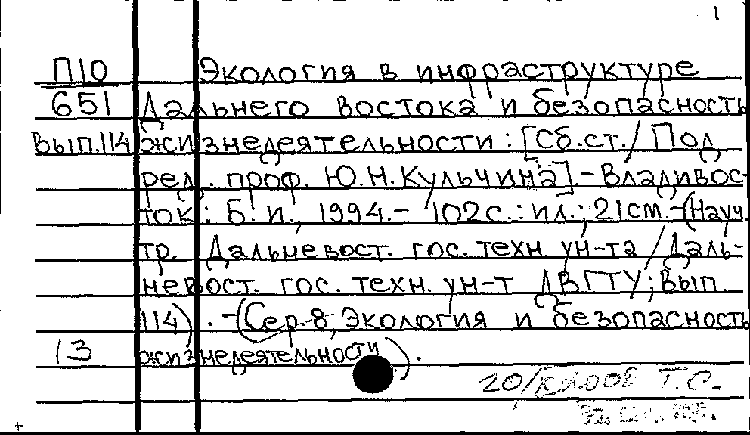 1
П10 Экология в инфраструктуре
651 Дальнего Востока и безопасность
Вып.114 жизнедеятельности : [Сб.ст./ Под
ред. проф. Ю.Н.Кульчина].- Владивос-
ток : Б. и., 1994.- 102с.: ил.; 21см.-(Науч
тр. Дальневост. гос. техн. ун-та / Даль-
невост. гос. техн. ун-т ДВГТУ; Вып.
114). -(Сер.8, Экология и безопасность
13 жизнедеятельности).
20/